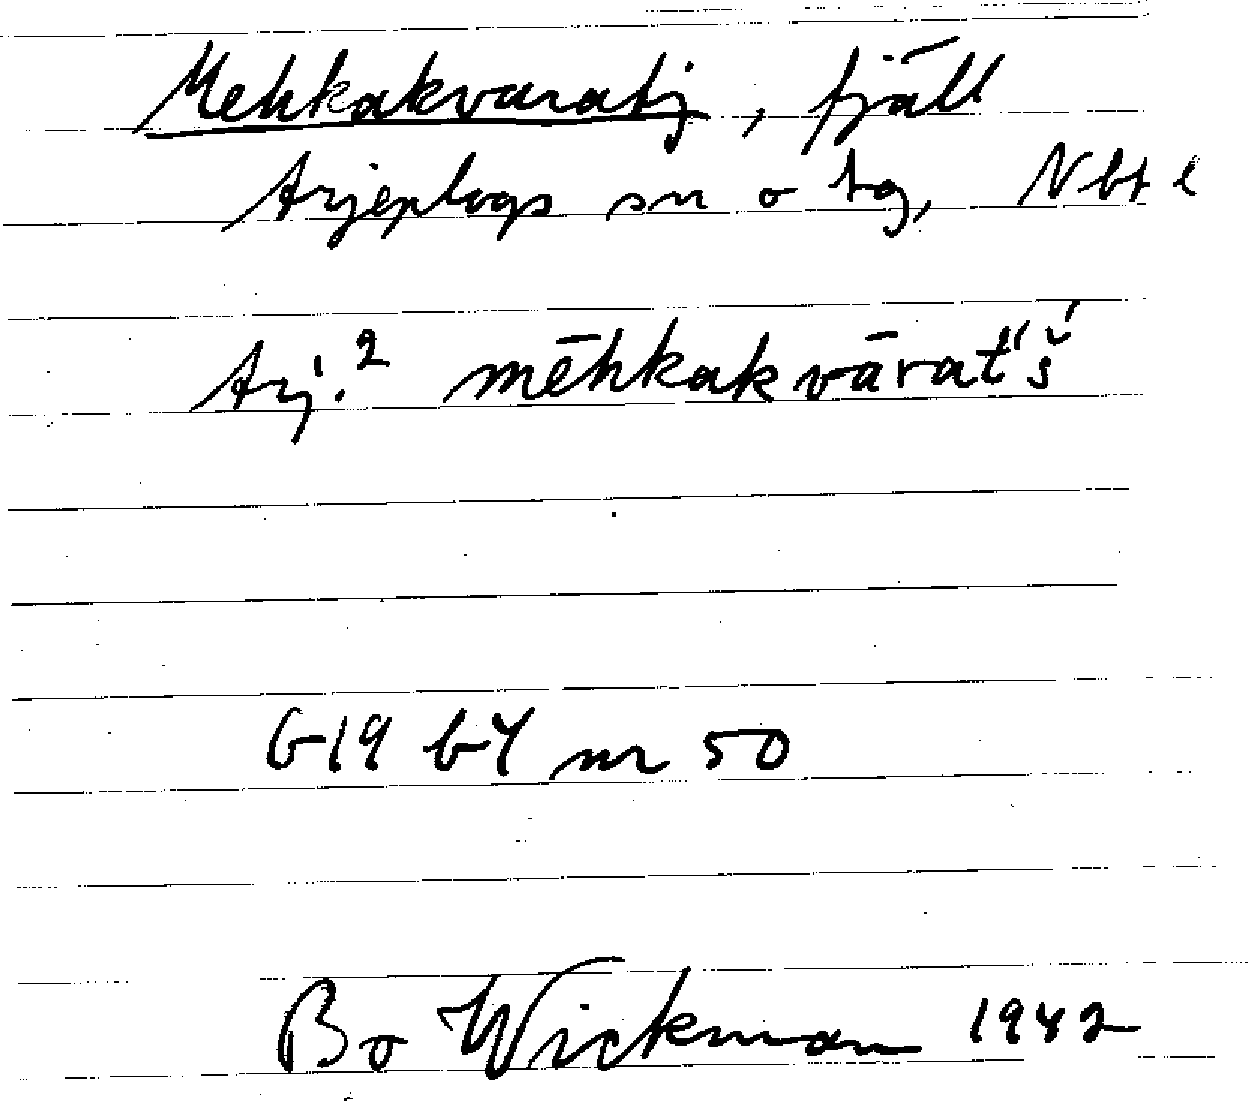 Mehkakvaratj, fjäll
Arjeplogs sn o tg, Nbt l
Arj.² mēhkakvārat́'š́
G19 b4 nr 50
Bo Wickman 1942